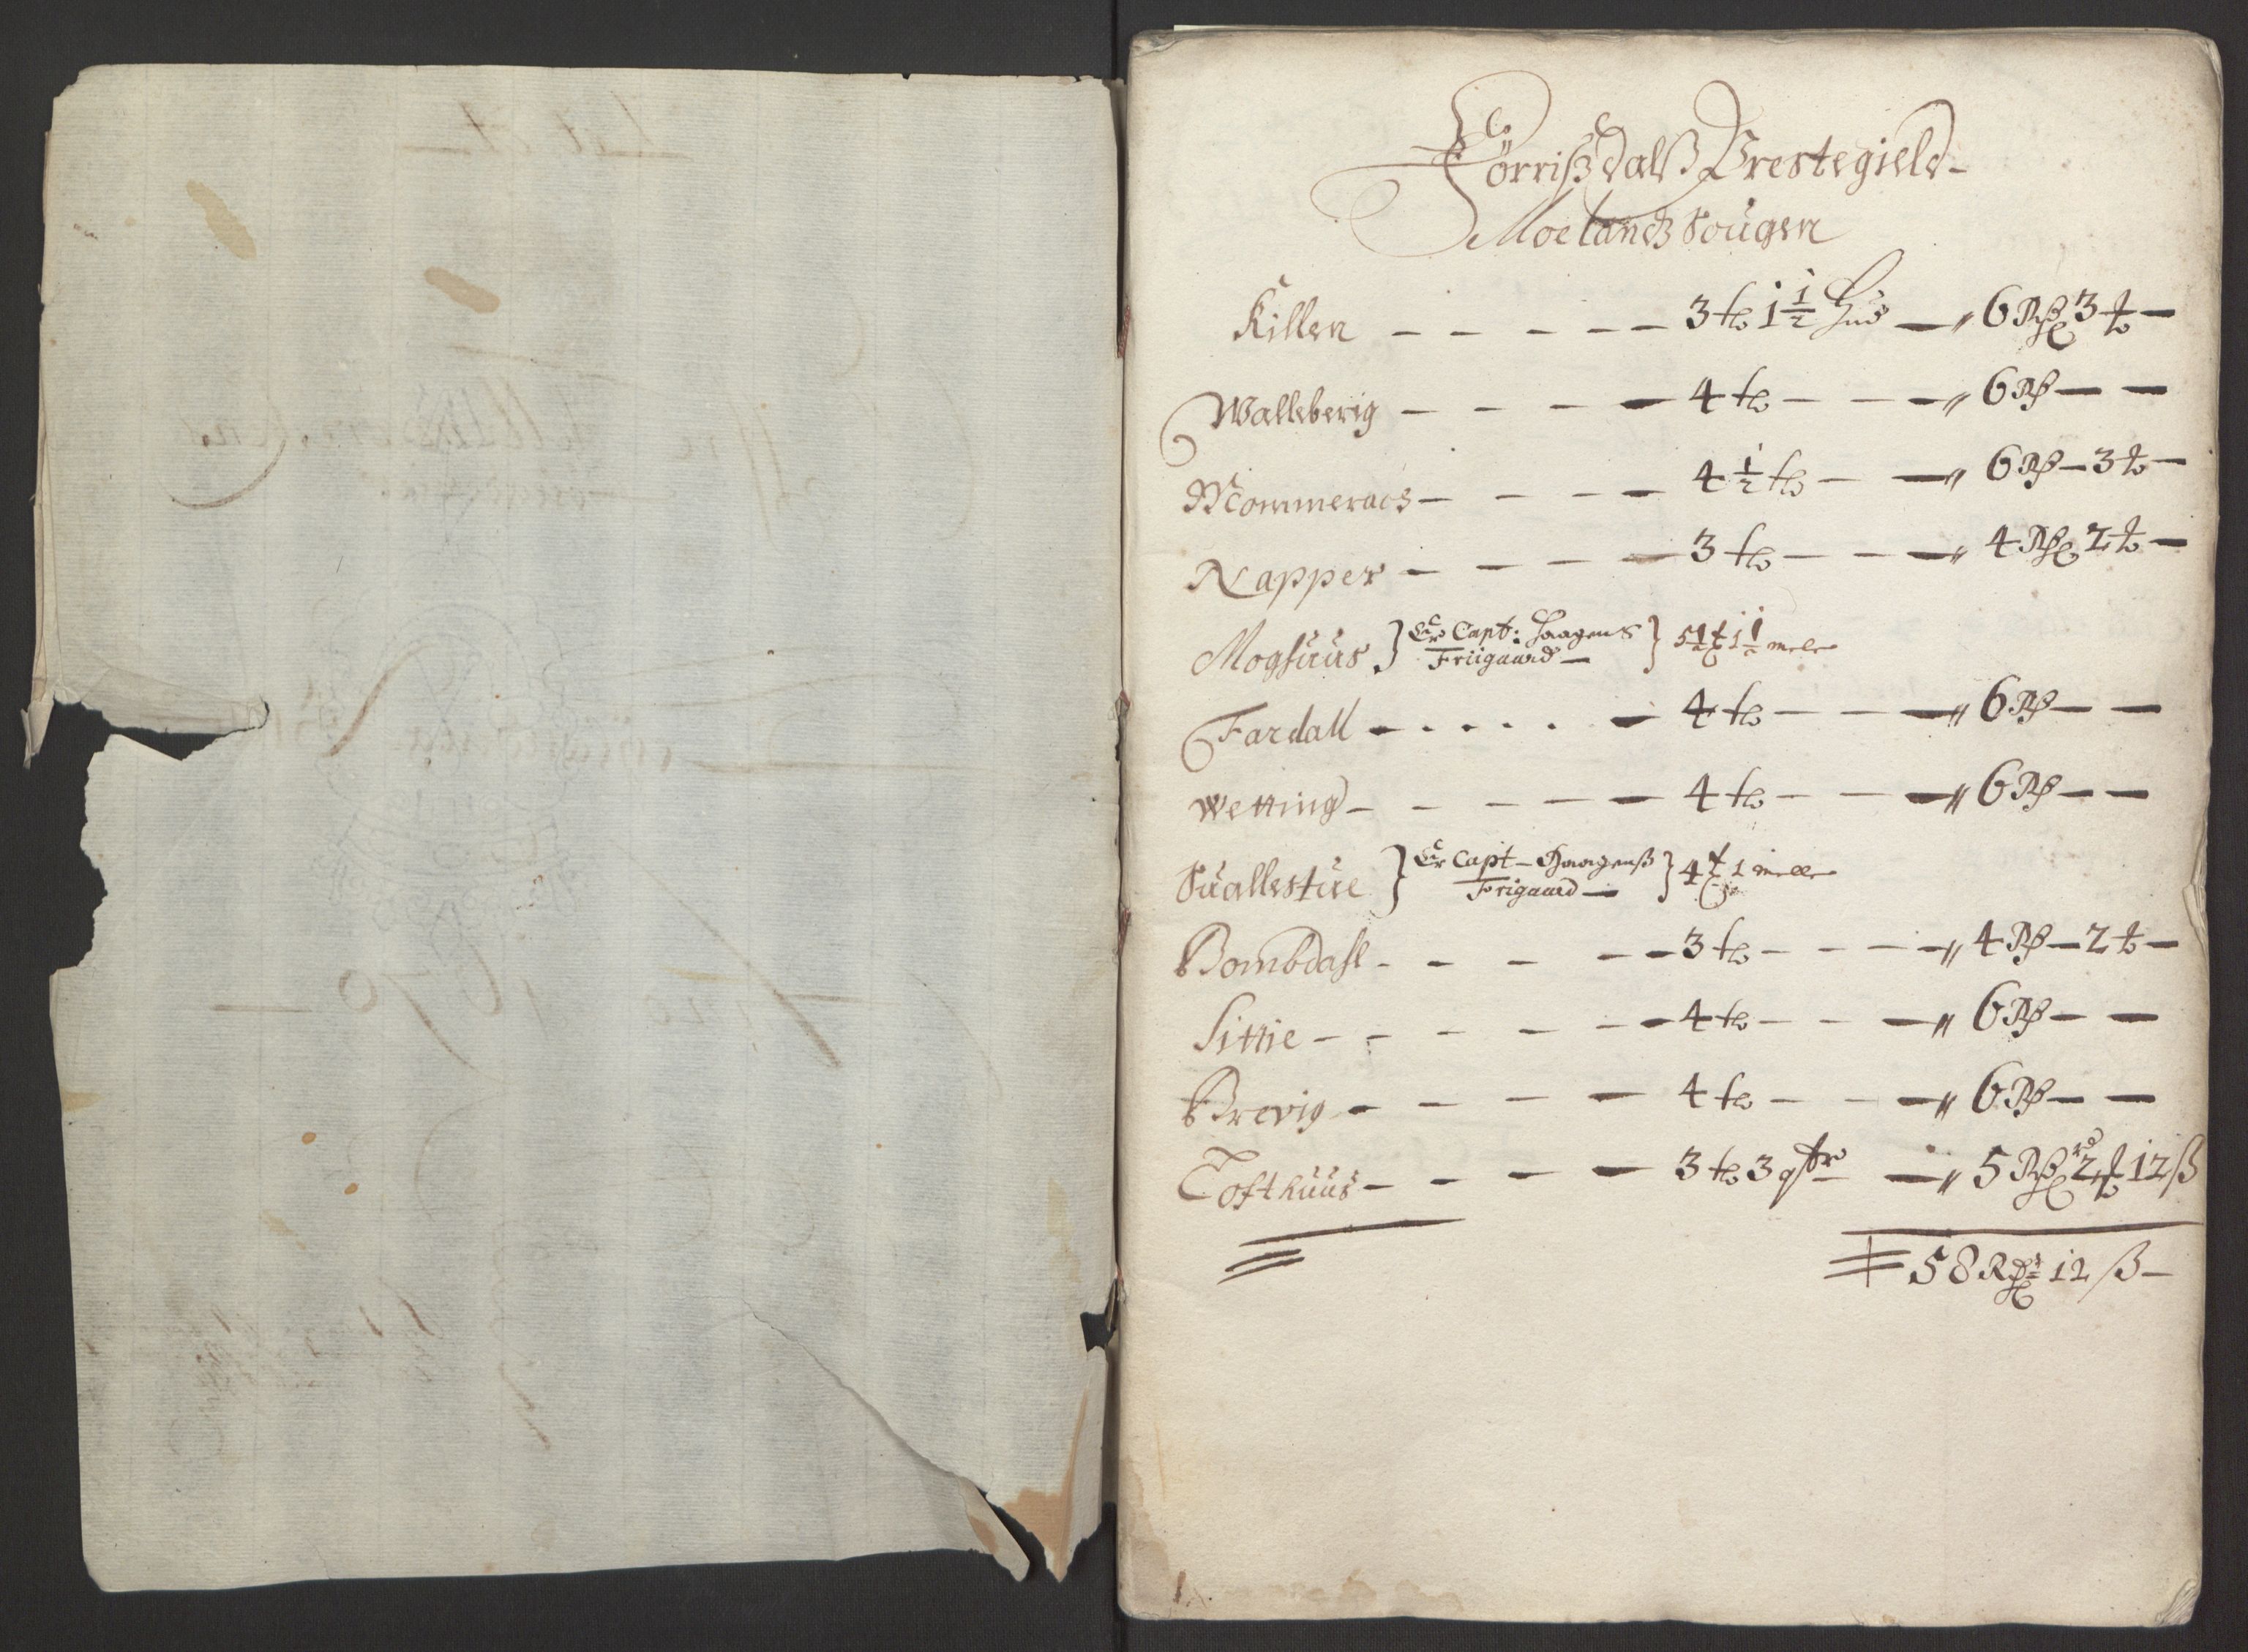 Törrißdalß Prestegield -
Moelandß Sougen
Killen - - - - - 3 td 1 1/2 Hud - 6 Rdr 3 t -
Walleberig - - - - 4 td - - - 6 Rd - -
Mommeraas - - - - 4 1/2 td - - 6 Rd - 3 t -
Napper - - - - 3 td - - - 4 Rdr 2 t -
Moghuus } Er Capt: Haagens Friigaard - } 5 1/2 t 1 1/2 mele
Fardall - - - - - 4 td - - - 6 Rd - -
Wetting - - - - - 4 td - - - 6 Rd - -
Suallestue } Er Capt - Haagenß Frigaard - } 4 t 1 melle
Bombdahl - - - - 3 td - - - 4 Rd - 2 t -
Sittie - - - - - 4 td - - - 6 Rd - -
Brevig - - - - 4 td - - - 6 Rd - -
Tofthuus - - - - 3 td 3 qtr - 5 Rdr 2 t 12 ß
58 Rdr 12 ß -